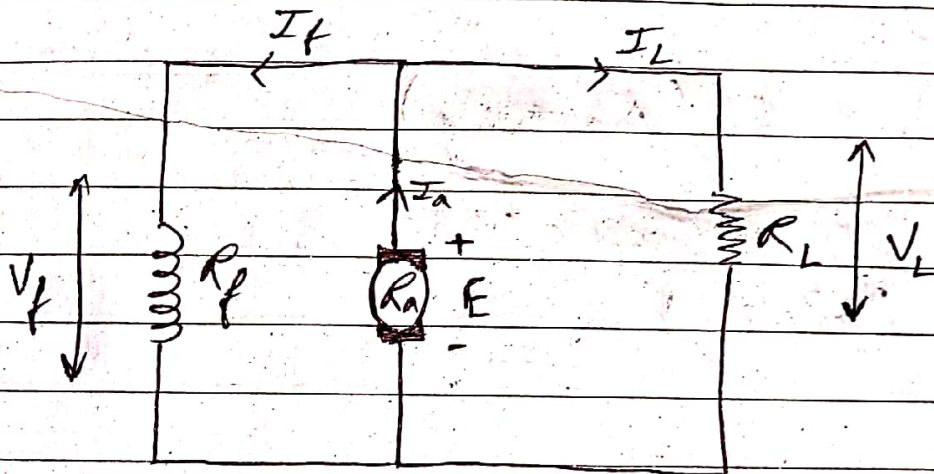 I_f I_L
I_a
+
V_f R_f R_a E R_L V_L
-